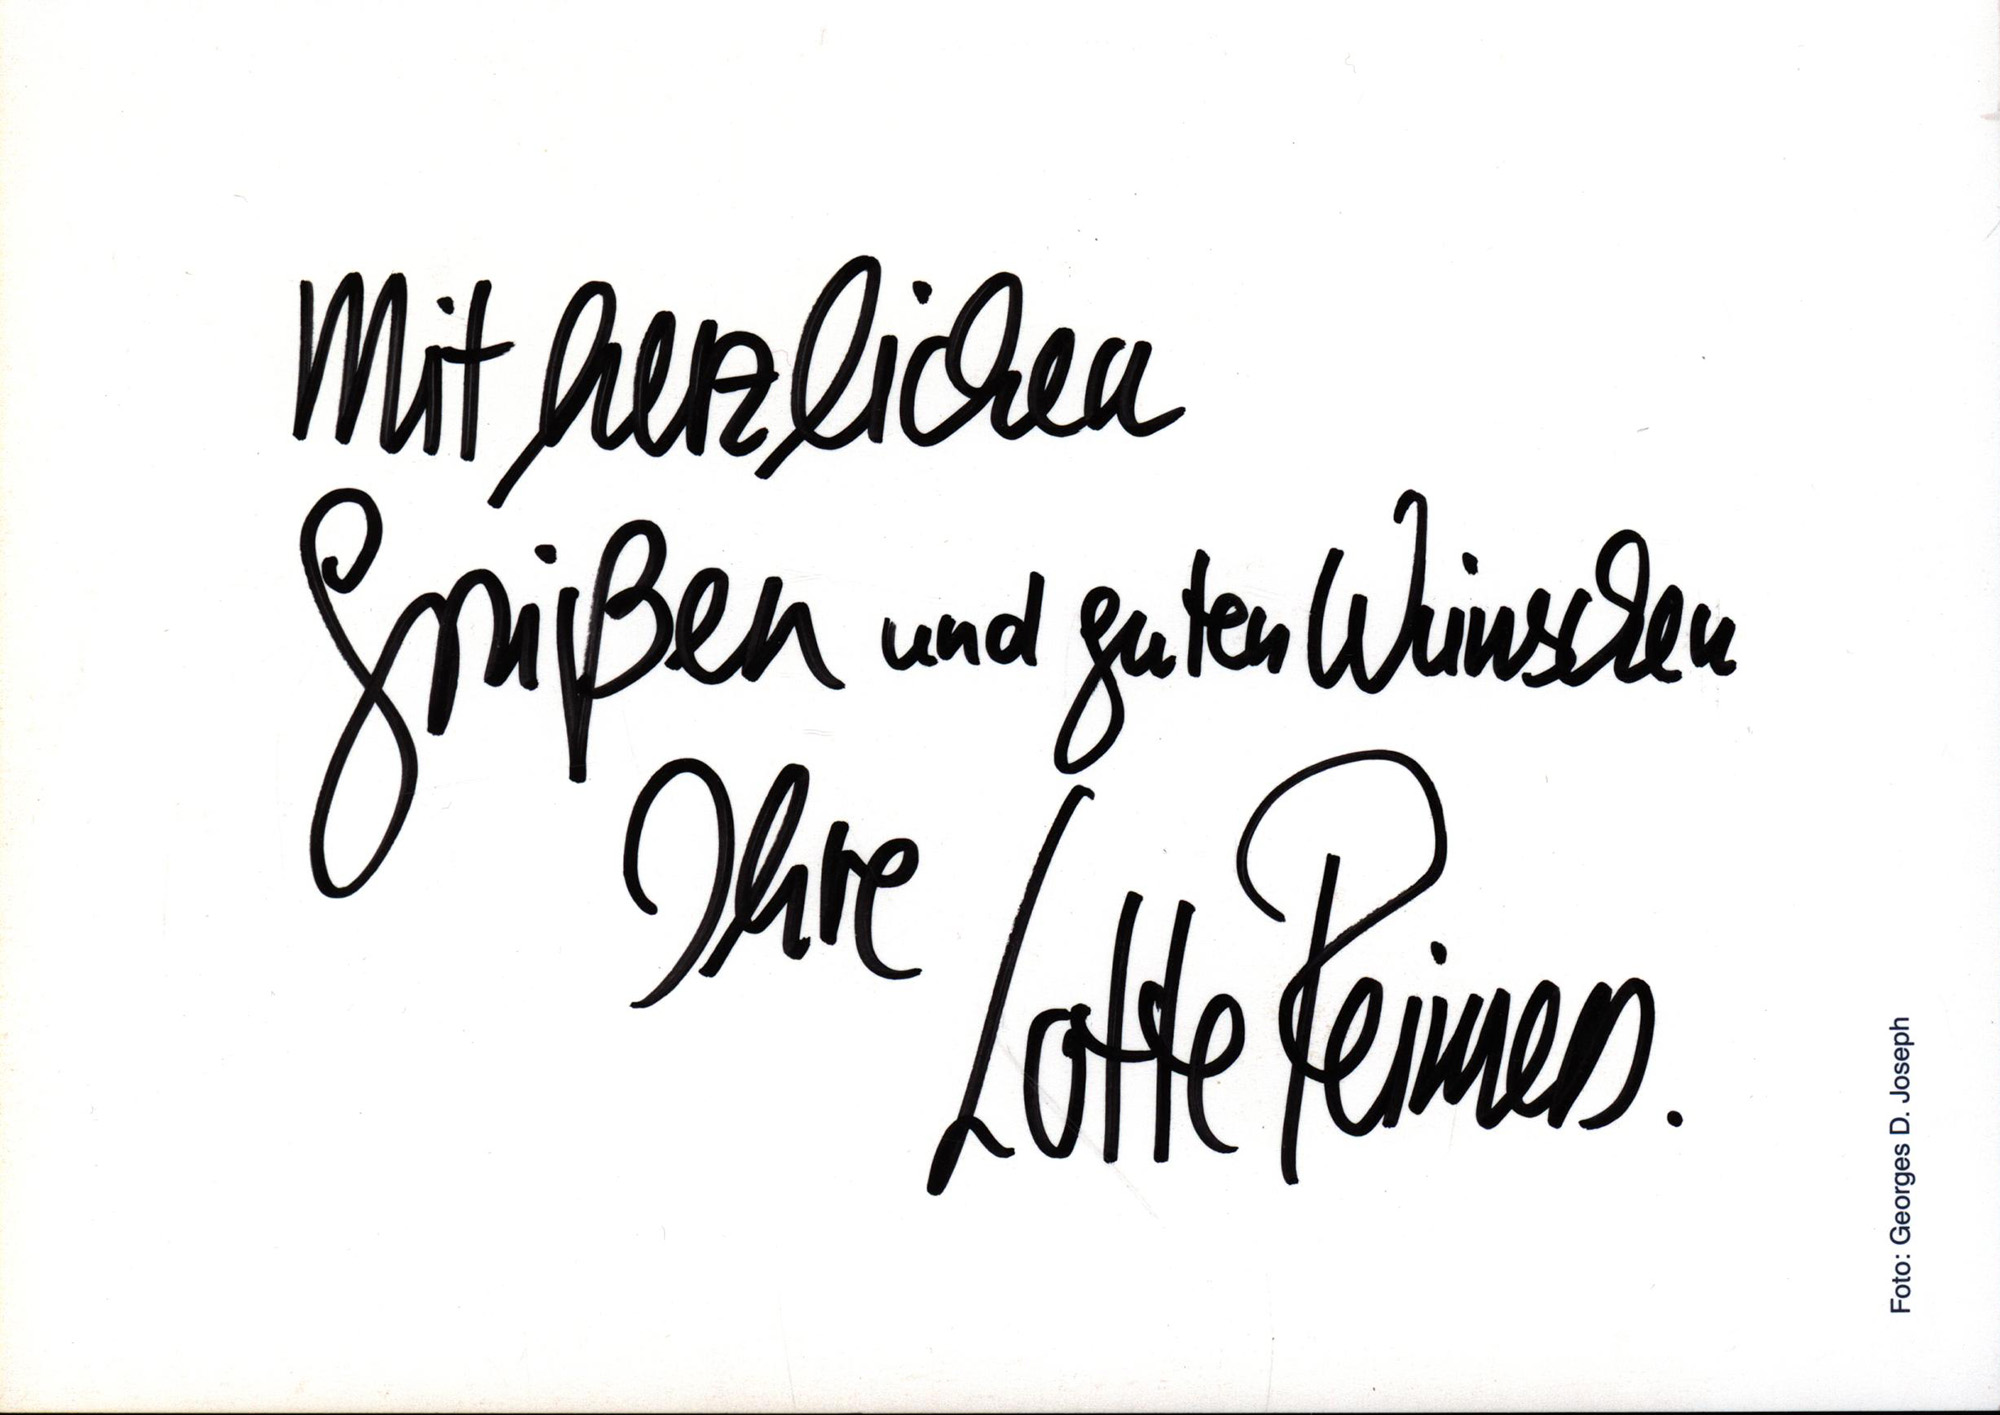 Mit herzlichen
Grüßen und guten Wünschen
Ihre Lotte Reimers.
Foto: Georges D. Joseph